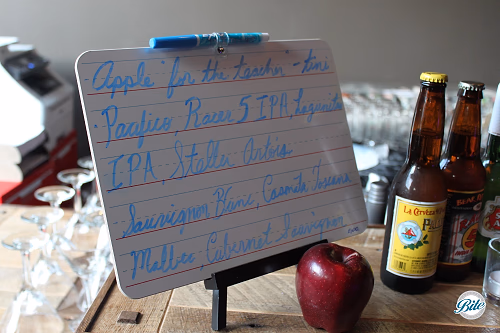 Apple for the teacher -tini
Pacifico, Racer 5 IPA, Lagunitas
IPA, Stella Artois
Sauvignon Blanc, Casmita Toscana
Malbec, Cabernet Sauvignon
La Cerveza
Bite